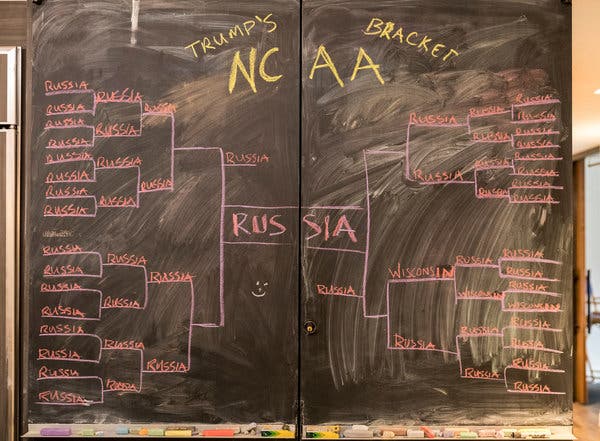 TRUMP'S BRACKET
NCAA
RUSSIA
RUSSIA
RUSSIA
RUSSIA
RUSSIA
RUSSIA
RUSSIA
RUSSIA
RUSSIA
RUSSIA
RUSSIA
RUSSIA
RUSSIA
RUSSIA
RUSSIA
RUSSIA
RUSSIA
RUSSIA
RUSSIA
RUSSIA
RUSSIA
RUSSIA
RUSSIA
RUSSIA
RUSSIA
RUSSIA
RUSSIA
RUSSIA
RUSSIA
RUSSIA
RUSSIA
RUSSIA
RUSSIA
RUSSIA
RUSSIA
RUSSIA
RUSSIA
RUSSIA
RUSSIA
RUSSIA
RUSSIA
RUSSIA
RUSSIA
RUSSIA
RUSSIA
WISCONSIN
RUSSIA
RUSSIA
WISCONSIN
RUSSIA
RUSSIA
RUSSIA
RUSSIA
RUSSIA
WISCONSIN
RUSSIA
RUSSIA
RUSSIA
RUSSIA